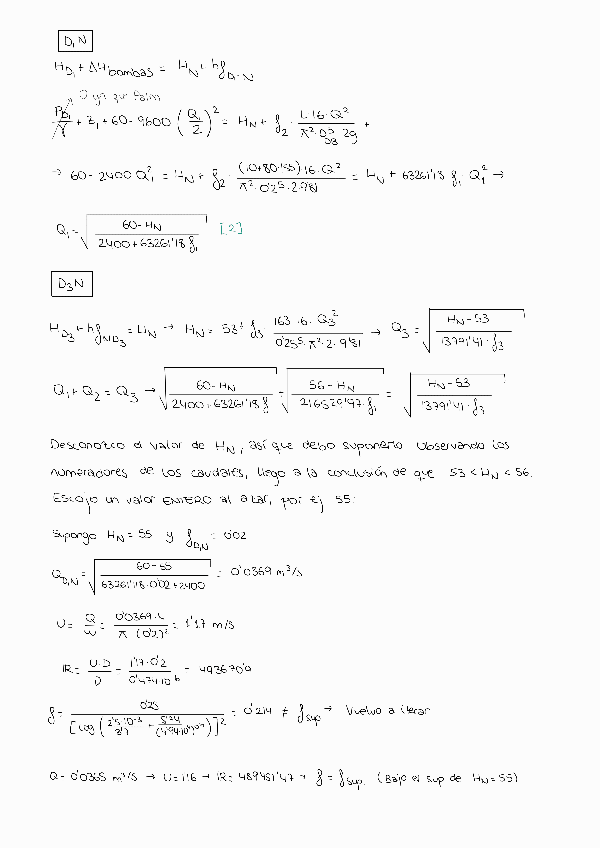 D₁N
H_D₁ + ΔH bombas = H_N + hf_D₁-N
0 ya que Patm
P_D₁/γ + z₁ + 60 - 9600 (Q₁/2)² = H_N + f₂ · L·16·Q²/π²·D⁵·2g +
→ 60 - 2400 Q₁² = H_N + f₂ · 16·Q²/π²·0'2⁵·2·9'81 = H_N + 63261'18 f₁·Q₁² →
Q₁ = √(60-H_N / 2400+63261'18 f₁) [2]
D₃N
H_D₃ + hf_ND₃ = H_N → H_N = 53 + f₃ 163·6·Q₃²/0'25⁵·π²·2·9'81 → Q₃ = √(H_N-53 / 1379'41·f₃)
Q₁ + Q₂ = Q₃ → √(60-H_N / 2400+63261'18 f) = √(56-H_N / 216529'97·f₁) = √(H_N-53 / 1379'41·f₃)
Desconozco el valor de H_N, así que debo suponerlo. Observando los
numeradores de los caudales, llego a la conclusión de que 53 < H_N < 56.
Escojo un valor ENTERO al azar, por ej 55:
Supongo H_N = 55 y f_D₁N = 0'02
Q_D₁N = √(60-55 / 63261'18·0'02+2400) = 0'0369 m³/s
U = Q/W = 0'0369·4/π (0'2)² = 1'17 m/s
IR = U·D/υ = 1'17·0'2/0'474·10⁻⁶ = 493670'0
f = 0'25/[log( )]² = 0'214 ≠ f_sup → Vuelvo a iterar
Q = 0'0365 m³/s → U = 1'16 → IR = 489451'47 → f = f_sup. (Bajo el sup de H_N = 55)